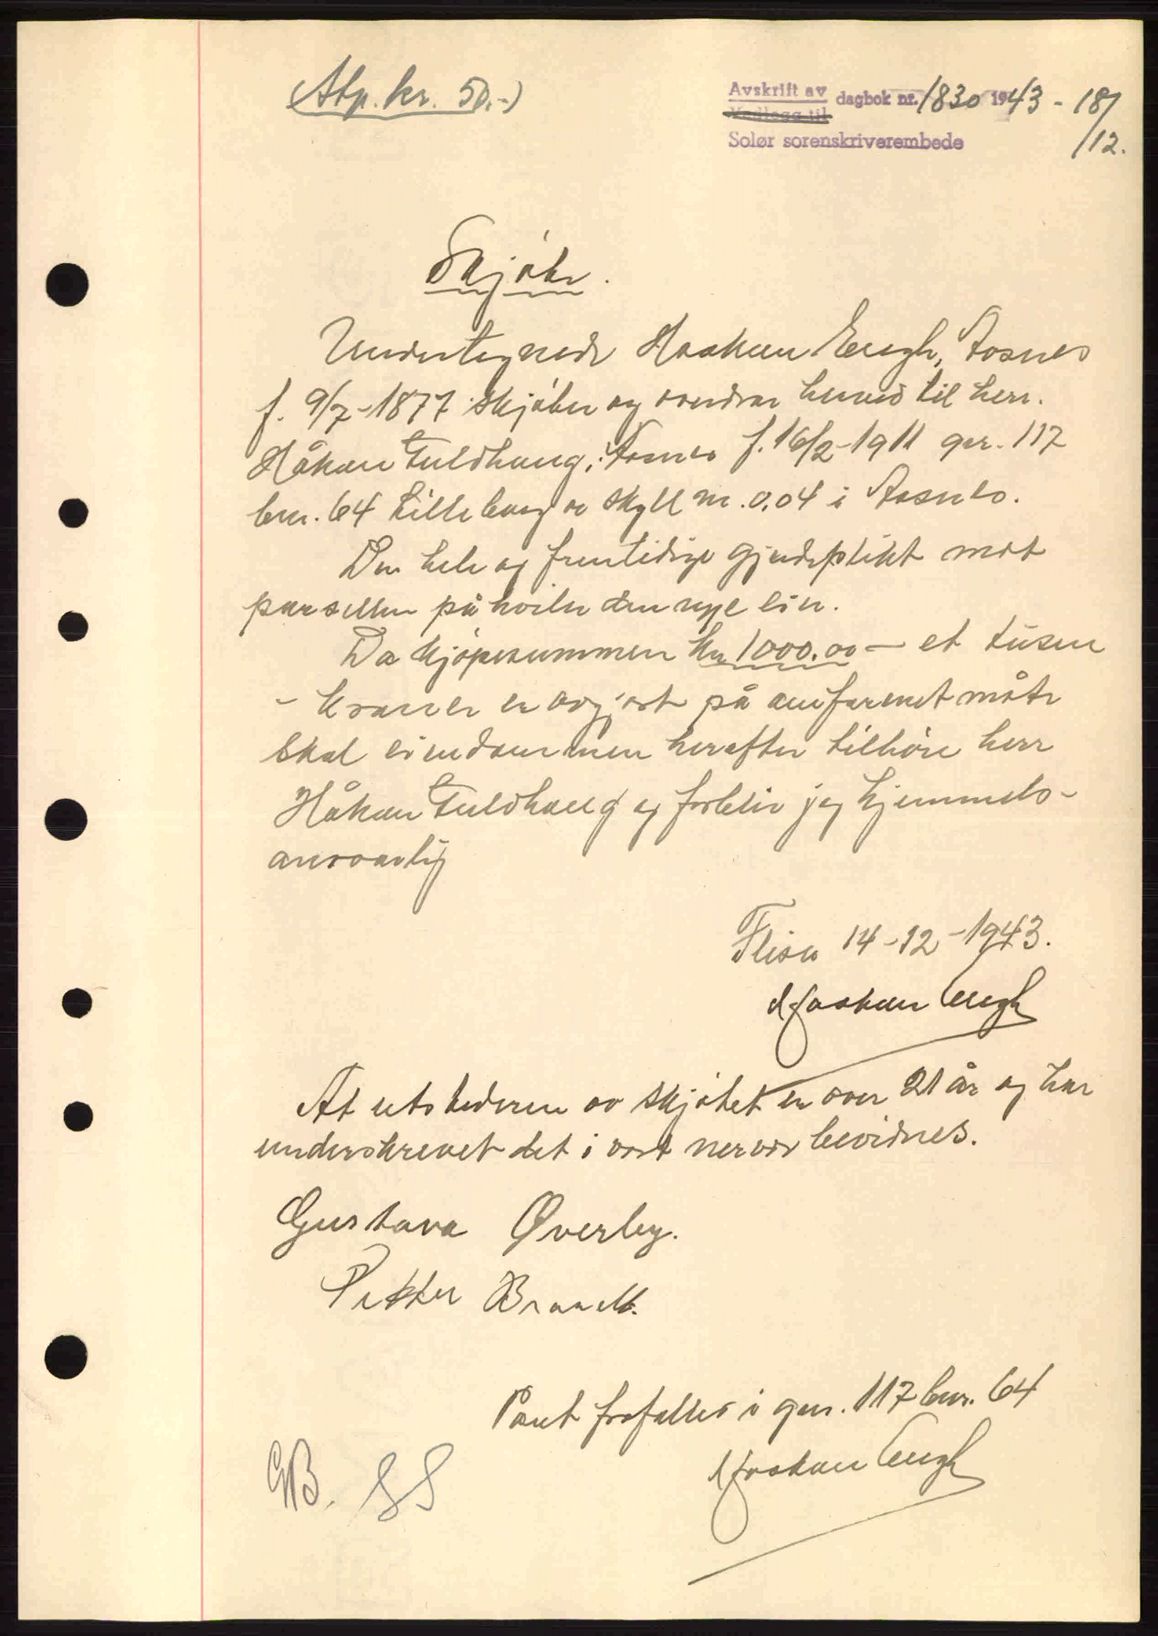 Stp. kr. 50.-)
Avskrift av dagbok nr. 1830 1943 - 18/
Vedlegg til
Solør sorenskriverembede /12.
Skjøte.
Undertegnede Haakon Engh, Aasnes
f. 9/7-1877 skjøter og overdrar herved til herr.
Håkon Fuldhaug, Aasnes f. 16/2-1911 gnr. 117
bnr. 64 Lilleberg av skyll m. 0,04 i Aasnes.
Den hele og fremtidige gjerdeplikt mot
parsellen påhviler den nye eier.
Da kjøpesummen kr. 1000.00 — et tusen
- kroner er avgjort på omforenet måte
skal eiendommen herefter tilhøre herr
Håkon Fuldhaug og forblir jeg hjemmels-
ansvarlig
Flisa 14-12-1943.
Haakon Engh
At utstederen av skjøtet er over 21 år og har
underskrevet det i vort nervær bevidnes.
Gustava Øverby.
Petter Brandt.
Pant frafalles i gnr. 117 bnr. 64
Haakon Engh
GB. SS